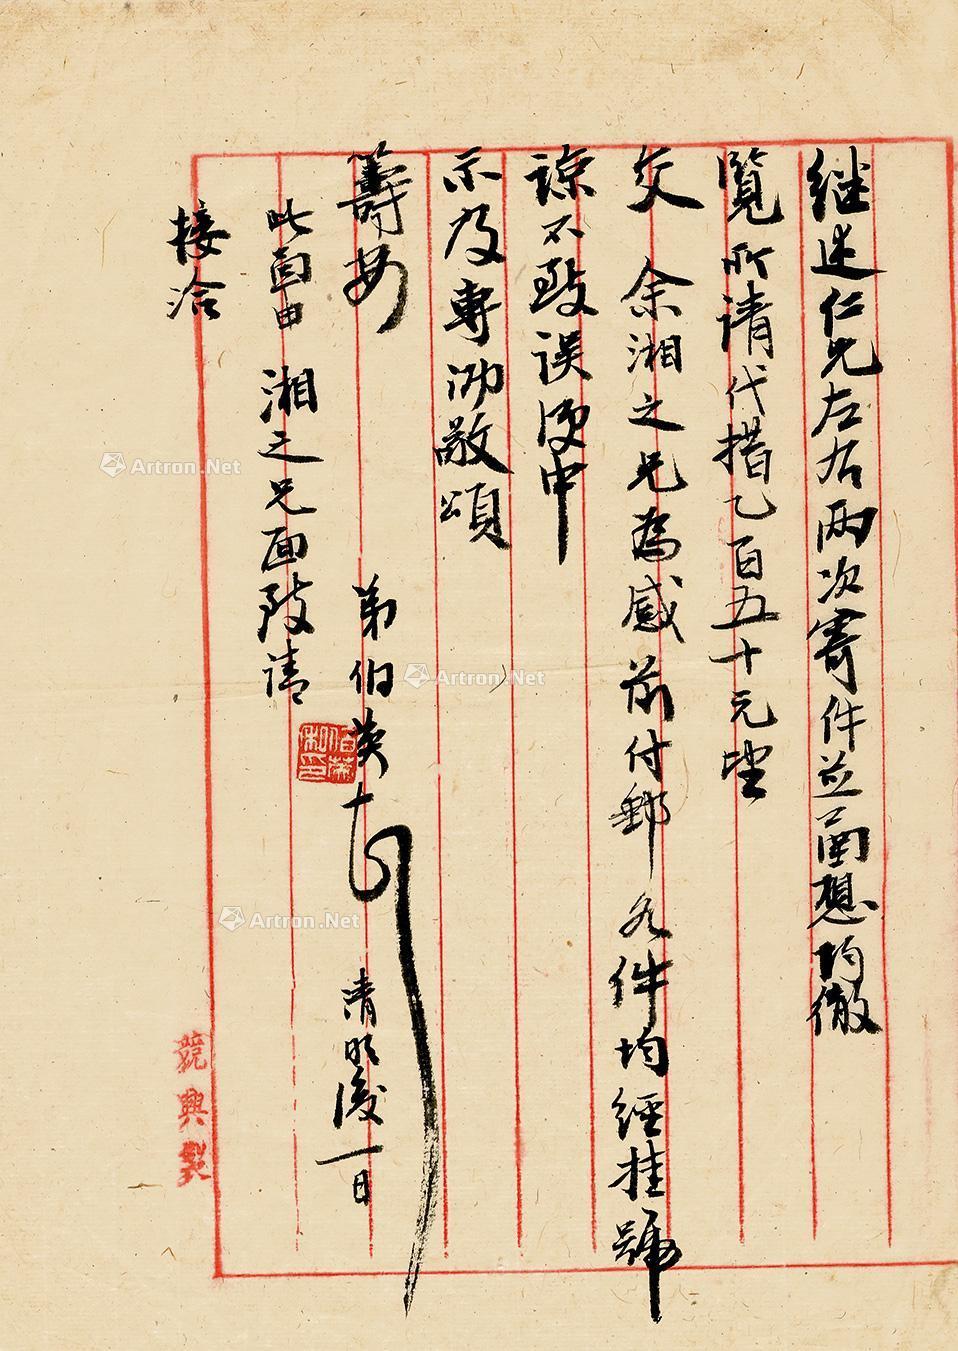 继述仁兄左右两次寄件並函想均徹
覽所请代措乙百五十元望
交余湘之兄為感前付郵各件均經挂號
諒不致误便中
示及專沏敬頌
籌安
弟伯英
清明後一日
此函由湘之兄面致请
接洽
競興製
Artron.Net
Artron.Net
Artron.Net